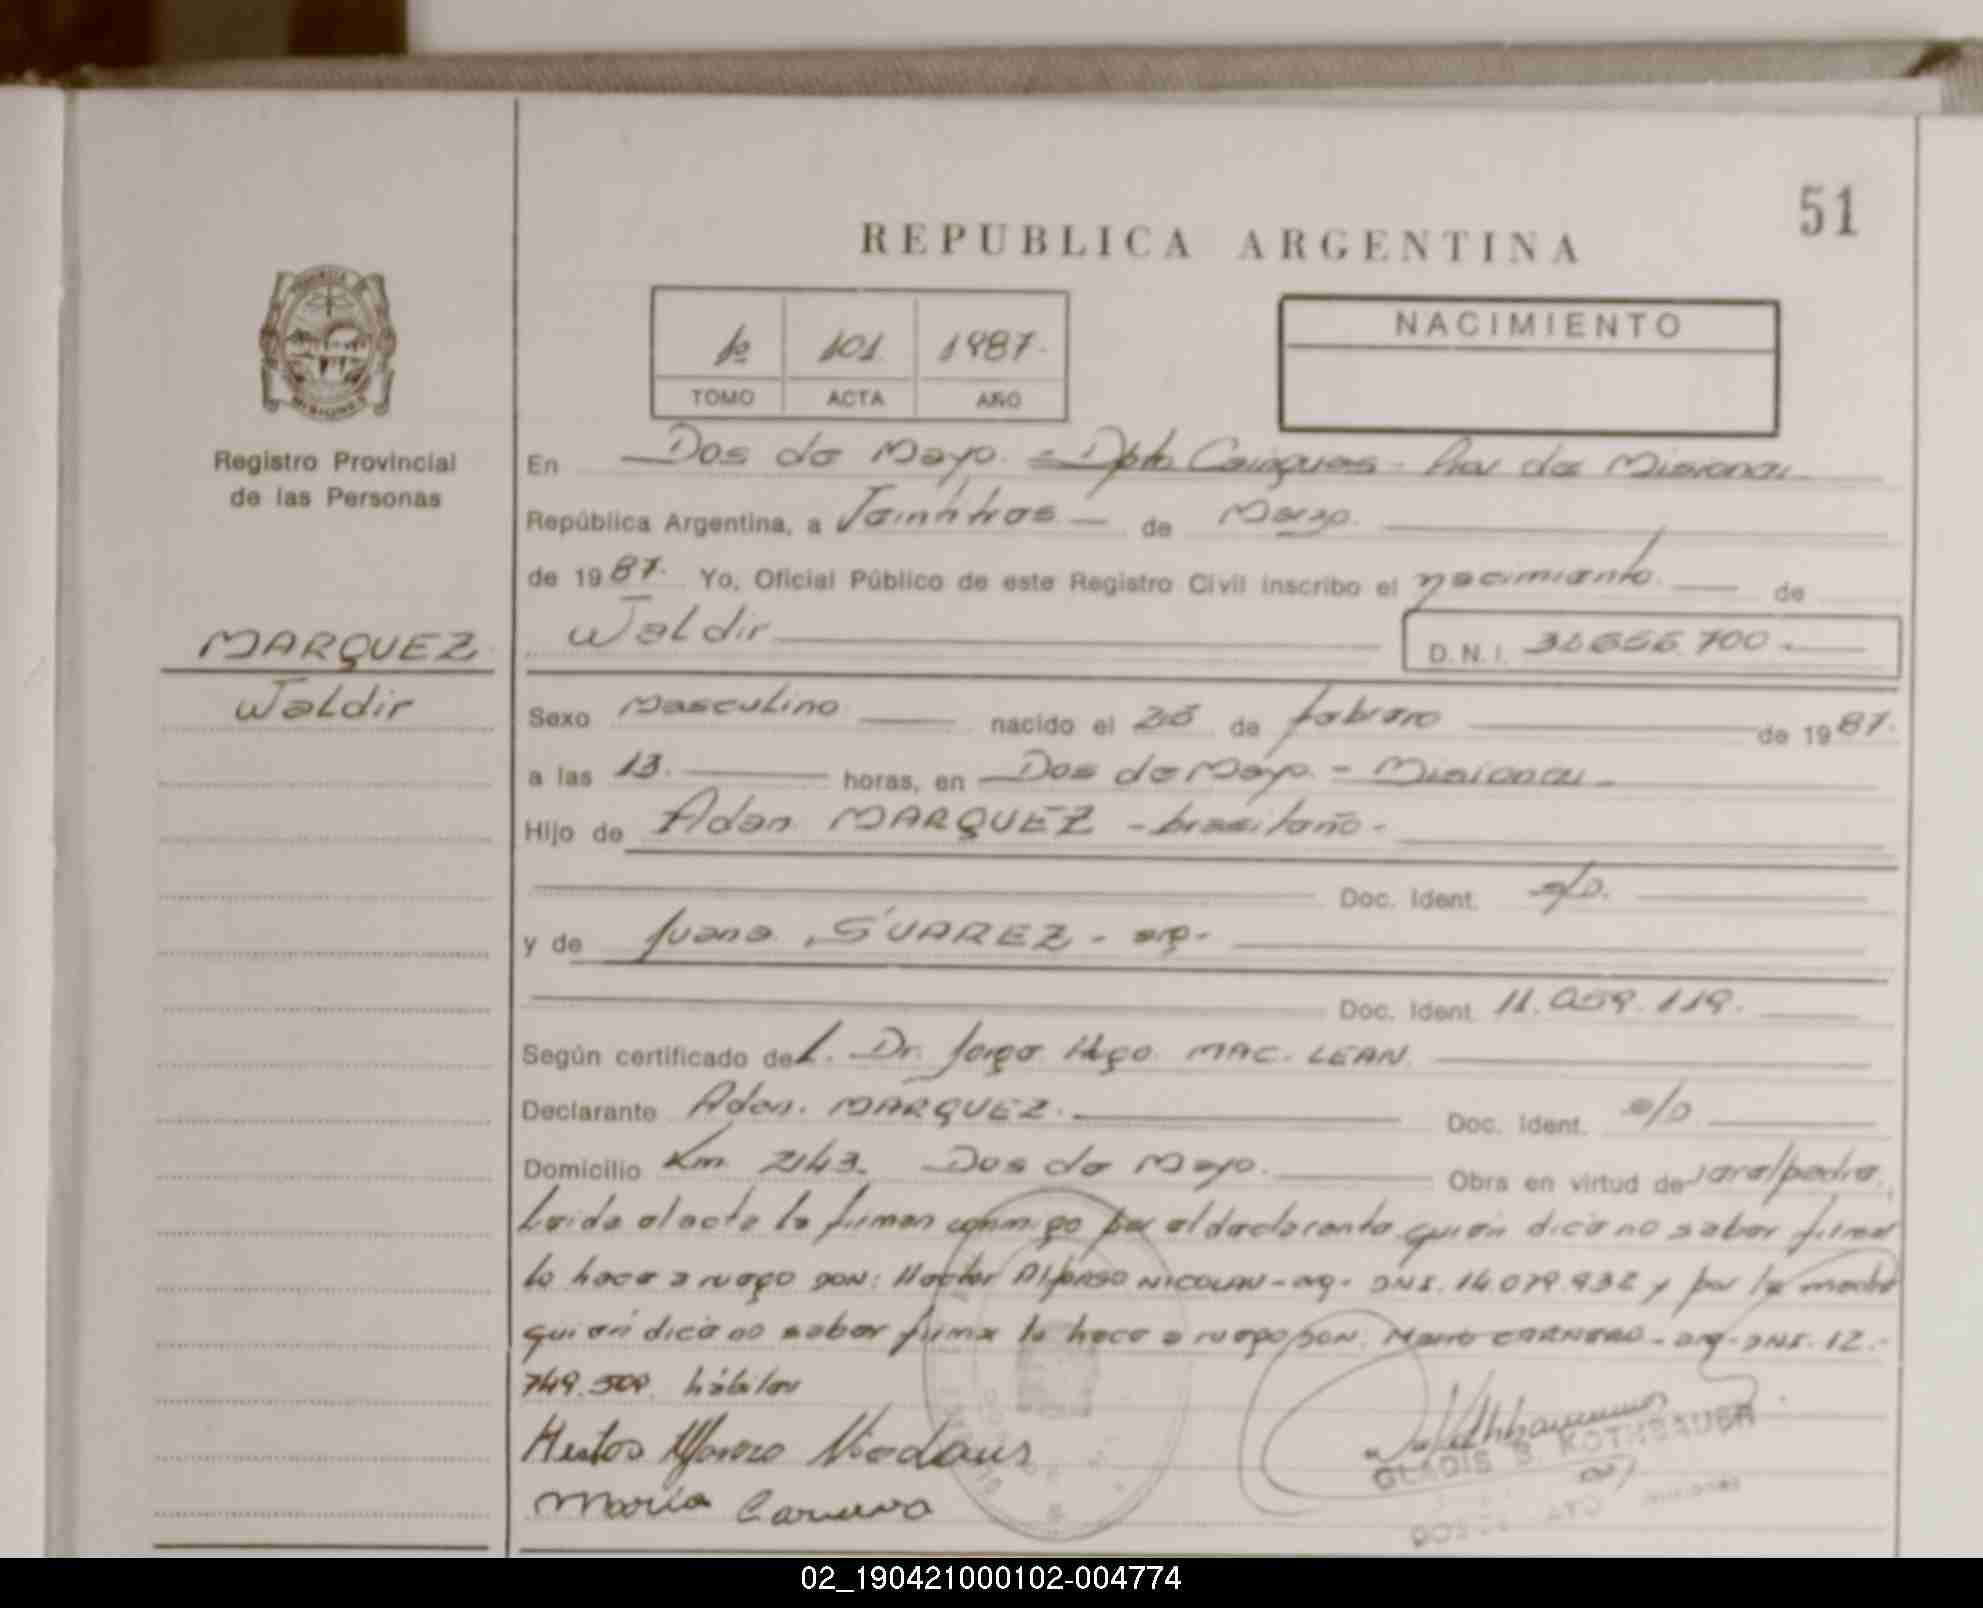 51
REPUBLICA ARGENTINA
1º 101 1987.
TOMO ACTA AÑO
NACIMIENTO
MISIONES
Registro Provincial
de las Personas
MARQUEZ
Waldir
En Dos de Mayo. Dpto Cainguas - de Misiones
República Argentina, a de Marzo.
de 1987. Yo, Oficial Público de este Registro Civil inscribo el nacimiento. de
Waldir D.N.I.
Sexo Masculino nacido el de febrero de 1987.
a las 13. horas, en Dos de Mayo. - Misiones
Hijo de Adan MARQUEZ - brasileño -
Doc. Ident. s/D.
y de Juana SUAREZ - arg -
Doc. Ident. 11.059.119.
Según certificado del. Dr. Jorge Hugo MAC. LEAN.
Declarante Adan. MARQUEZ. Doc. Ident. s/D
Domicilio Km 243. Dos de Mayo. Obra en virtud de padre.
Leida el acta la firman conmigo por el declarante quién dice no saber firmar
lo hace a ruego DON: Hector Alfonso NICOLAU - arg - DNI. 14.079.932 y por la madre
quién dice no saber firmar lo hace a ruego DON: - arg - DNI. 12.-
749. hábiles
Maria
GLADIS S. KOTHBAUER
02_190421000102-004774